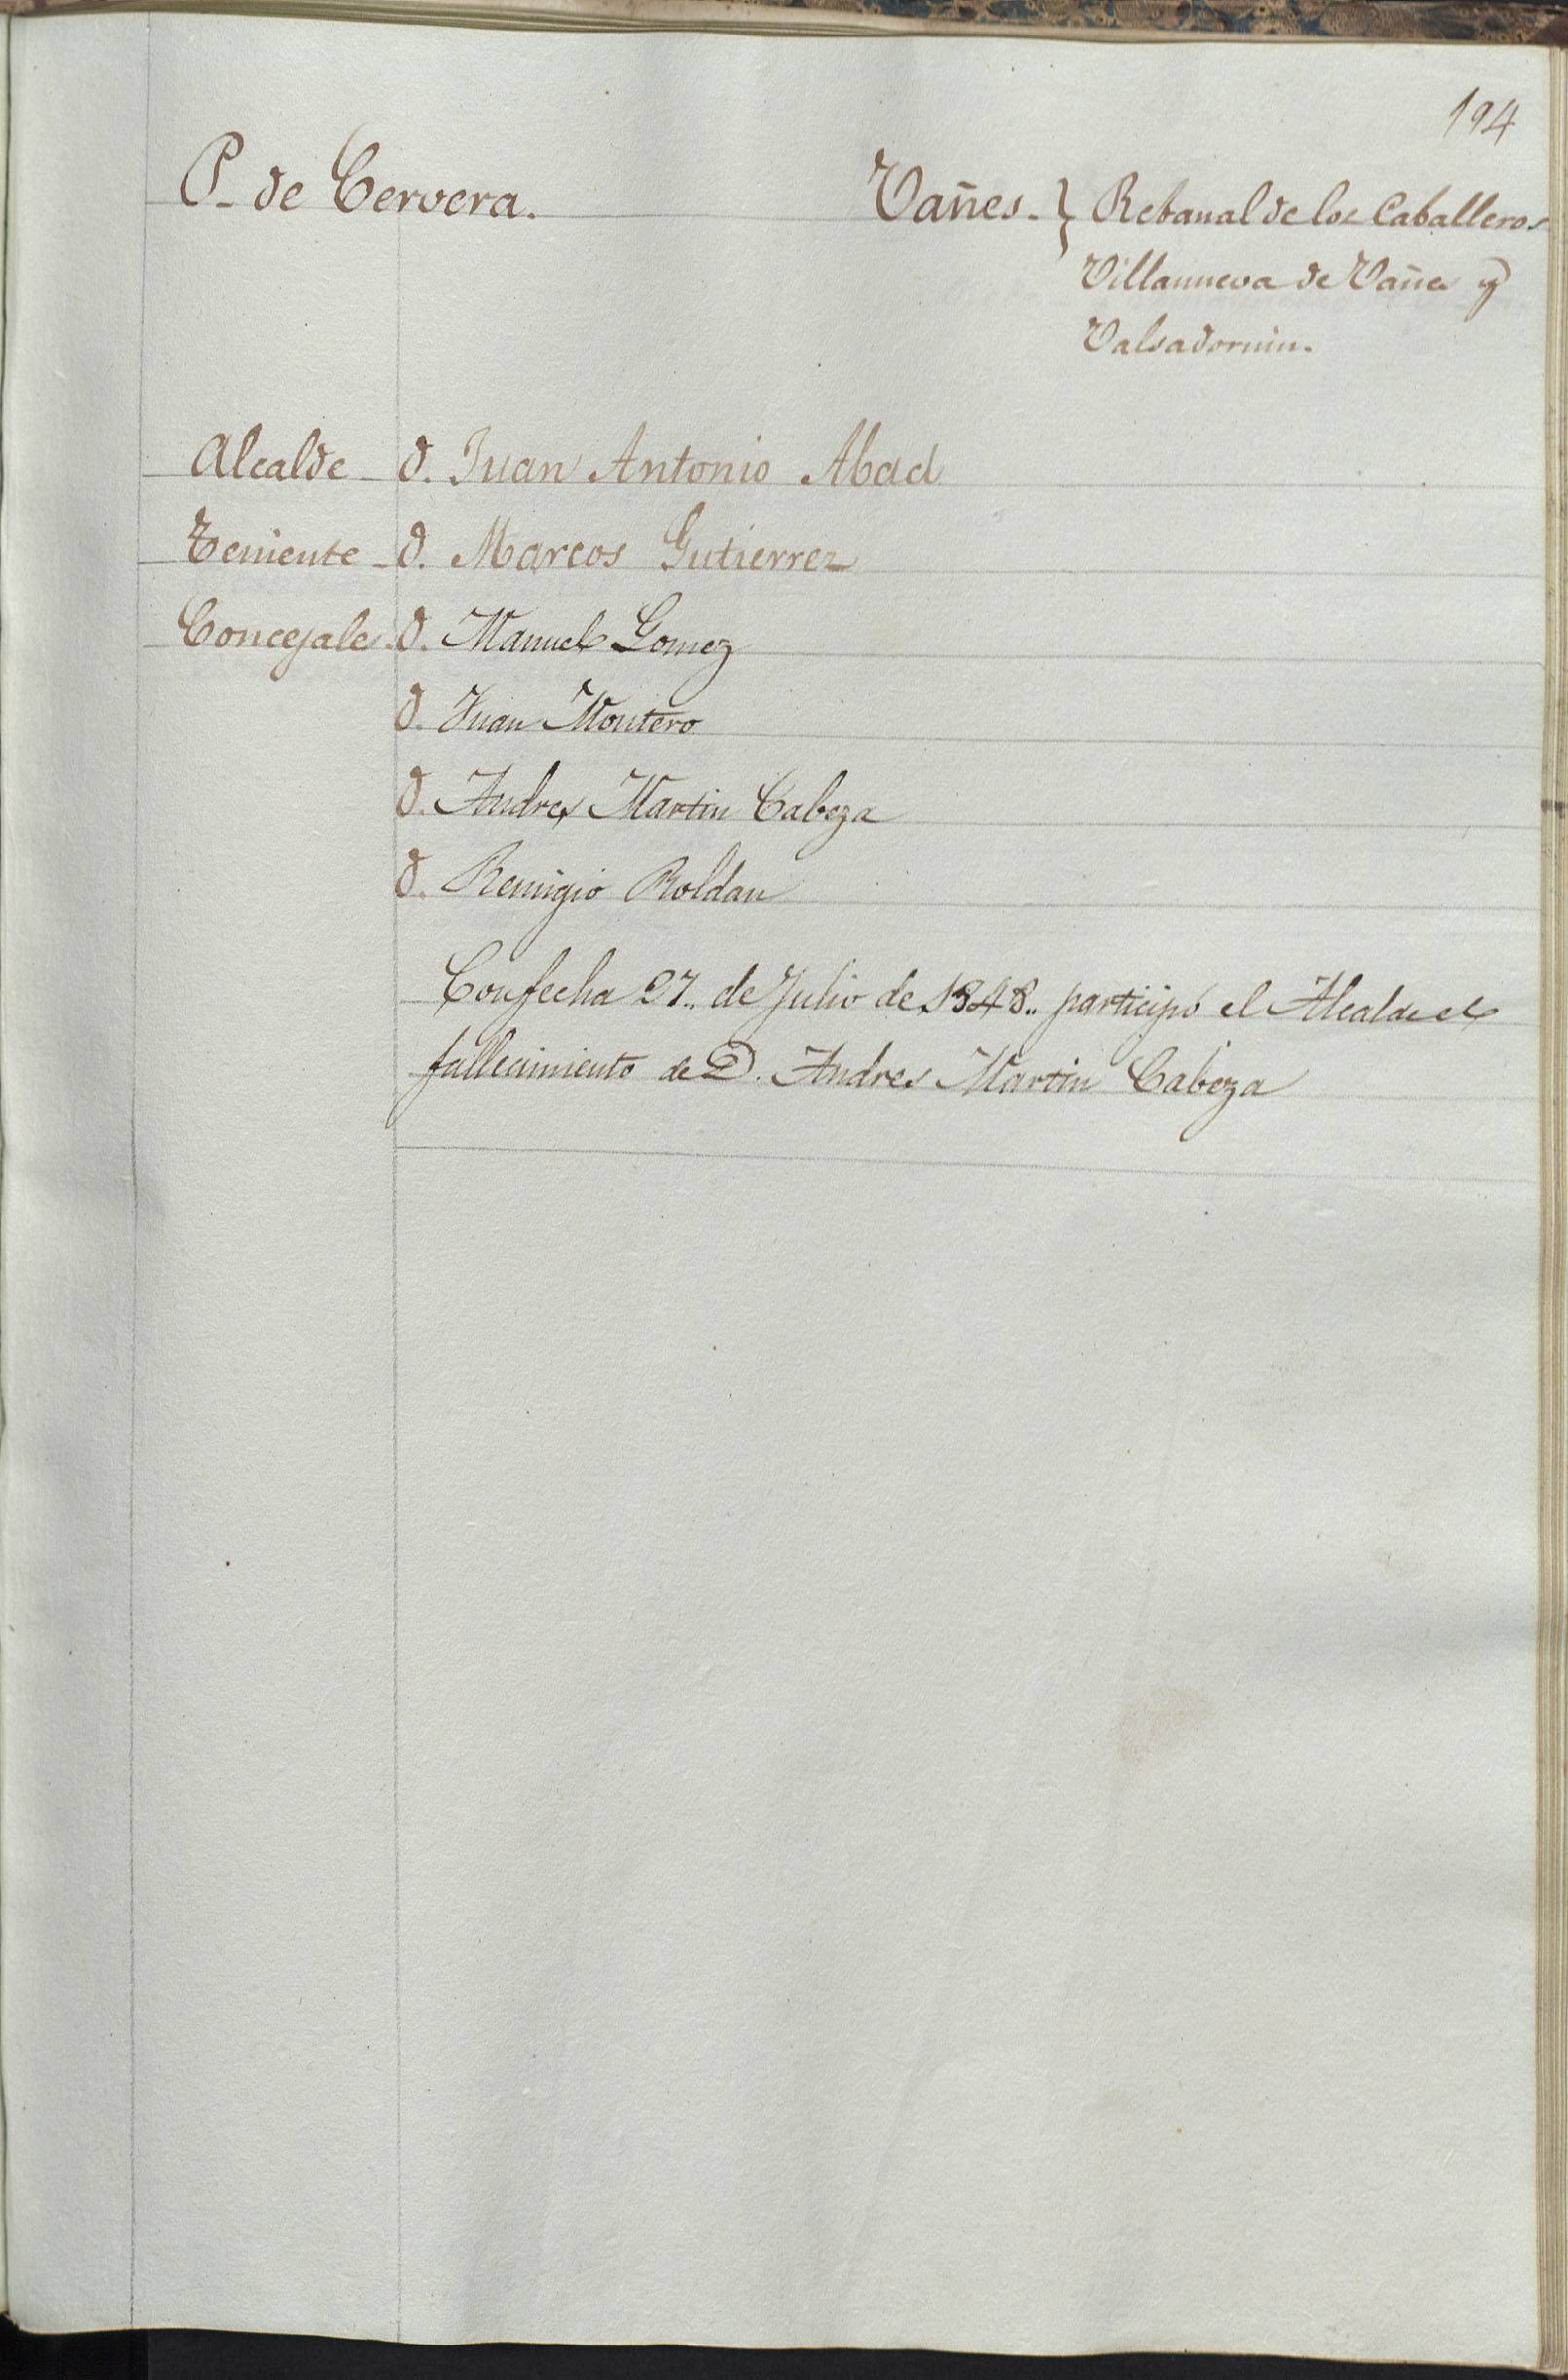 194
P. de Cervera.
Vañes. } Rebanal de los Caballeros
Villanueva de Vañes y
Valsadornin.
Alcalde D. Juan Antonio Abad
Teniente D. Marcos Gutierrez
Concejales D. Manuel Gomez
D. Juan Montero
D. Andres Martin Cabeza
D. Remigio Roldan
Con fecha 27.. de Julio de 1848.. participó el Alcalde el
fallecimiento de D. Andres Martin Cabeza